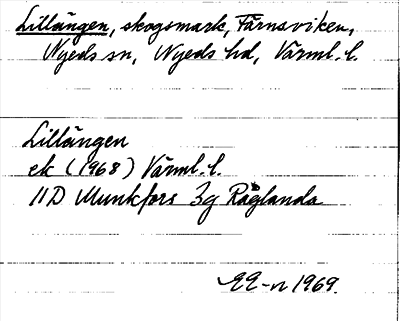 Lillängen, skogsmark, Färnsviken,
Nyeds sn, Nyeds hd, Värml. l.
Lillängen
ek (1968) Värml. l.
11D Munkfors 3g Råglanda
1969.